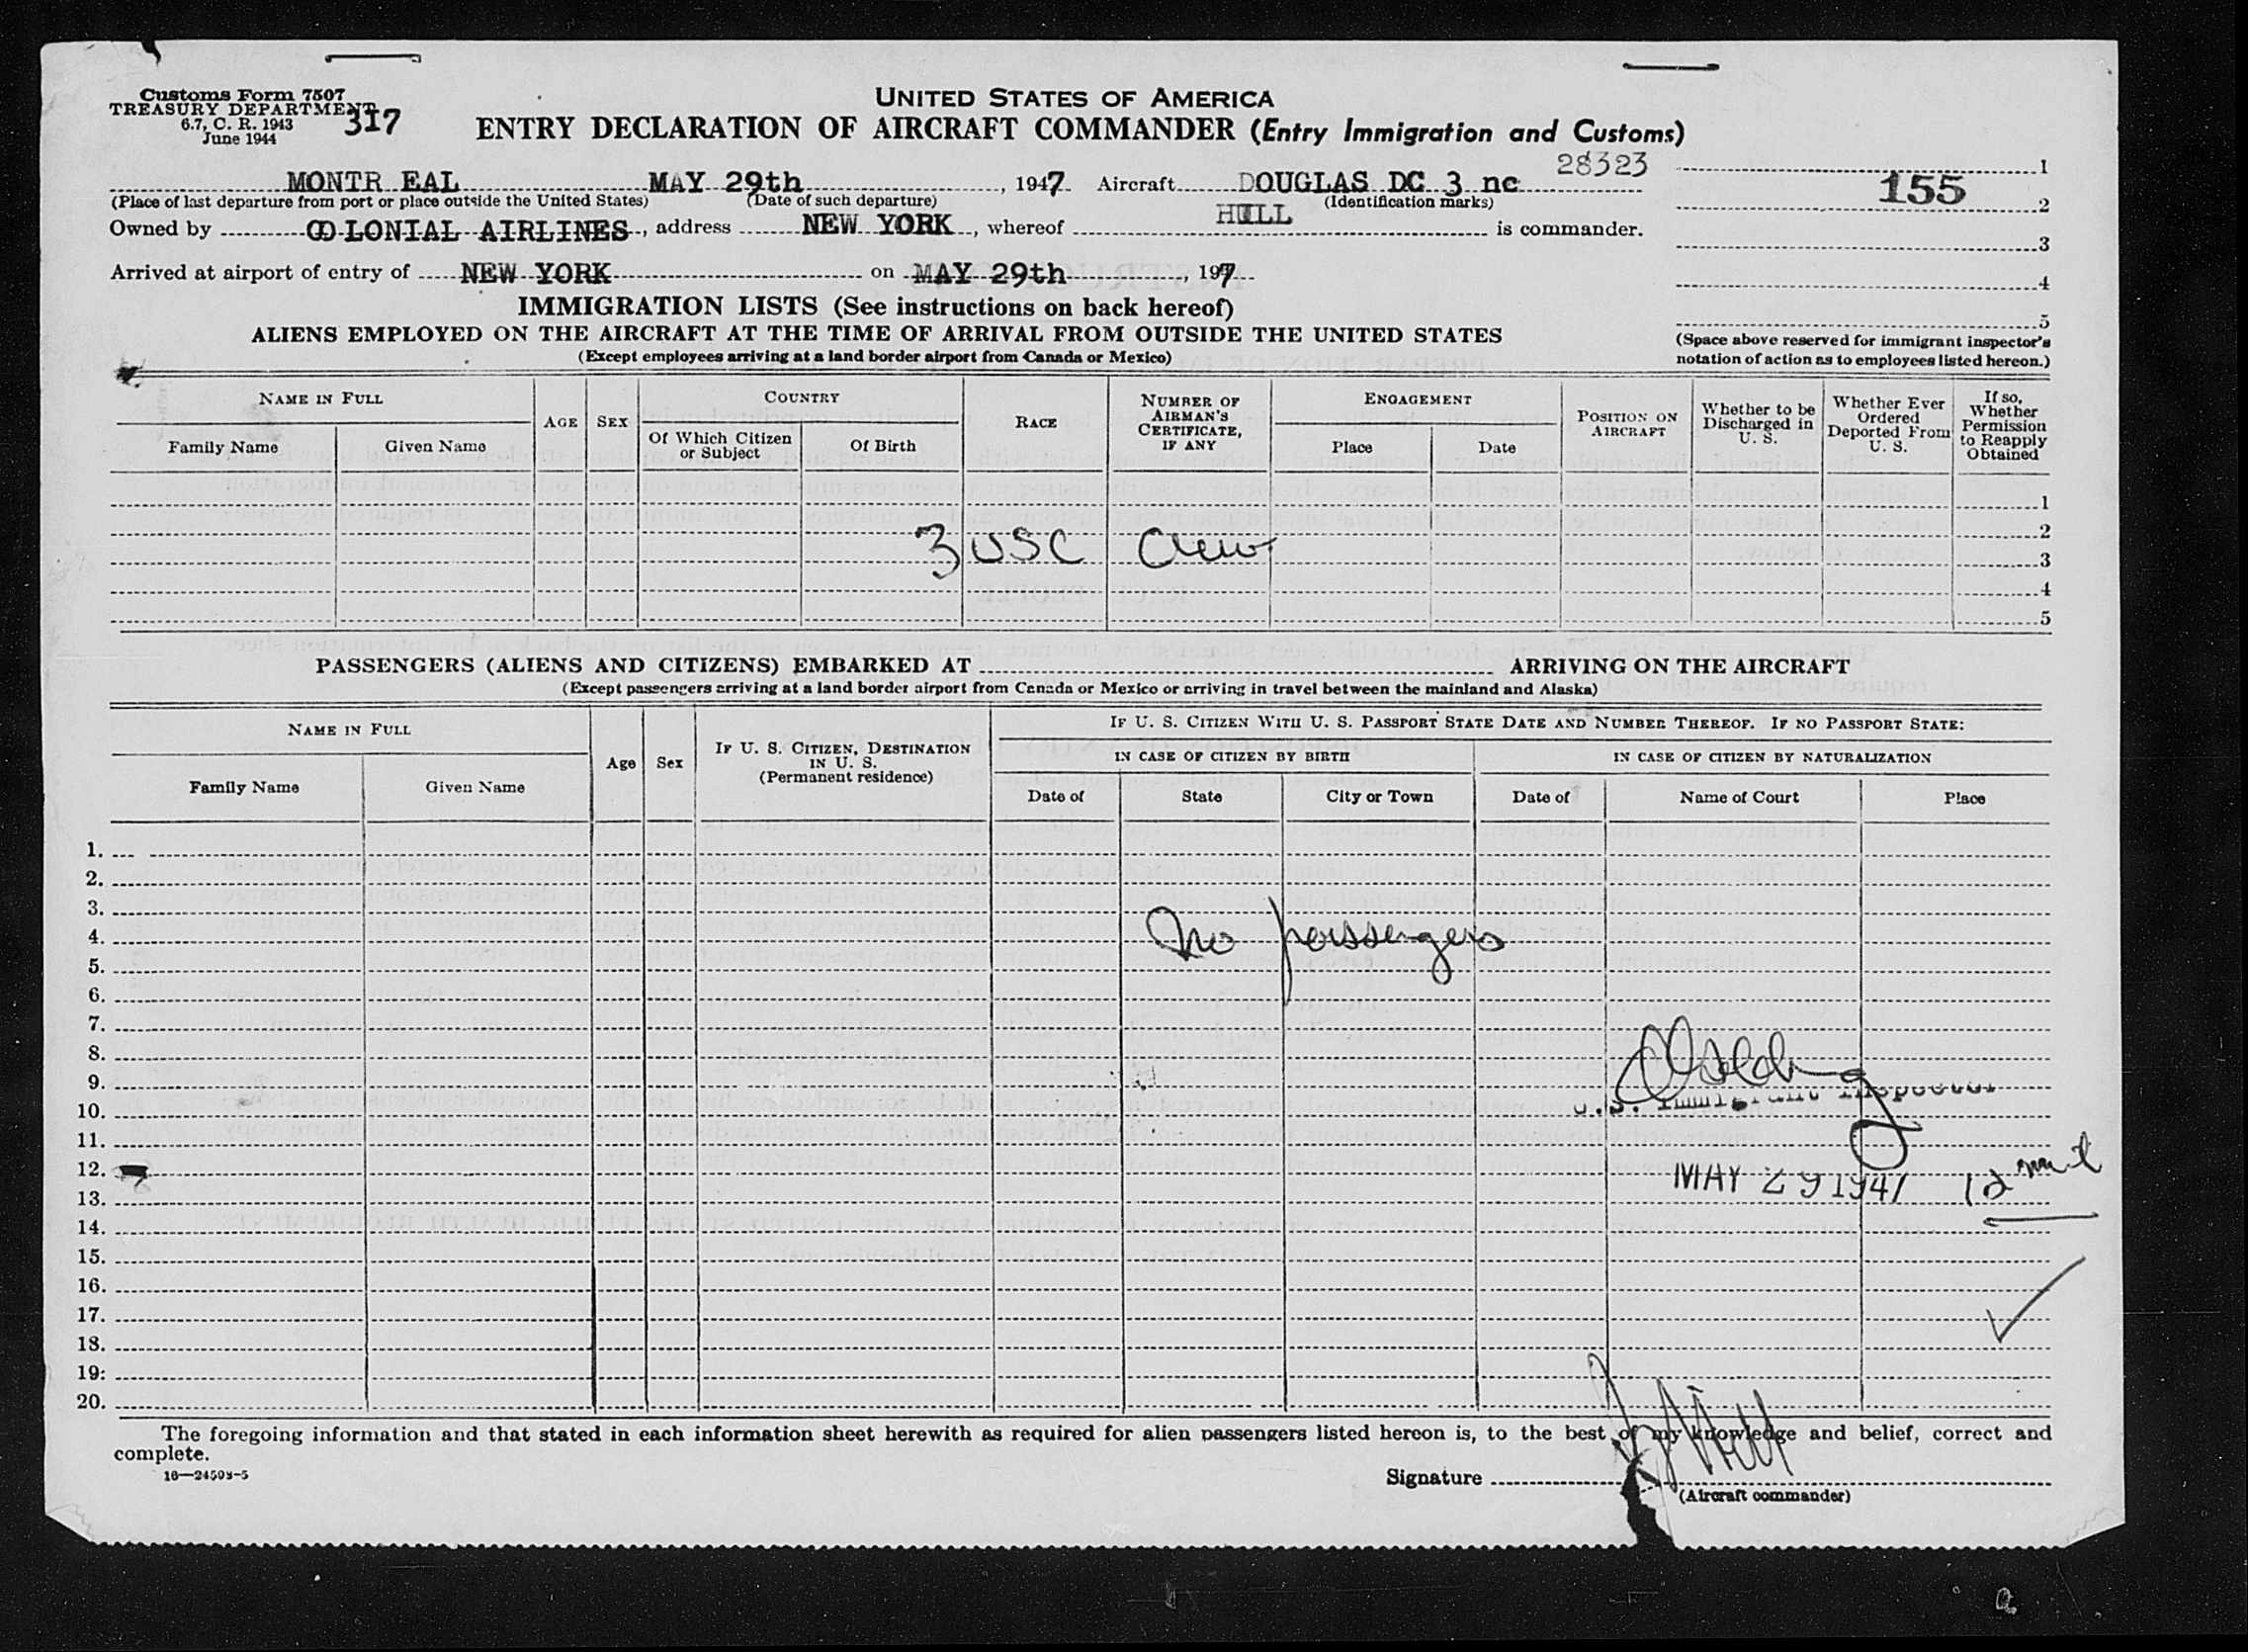 Customs Form 7507
TREASURY DEPARTMENT
6.7, C. R. 1943
June 1944
317
UNITED STATES OF AMERICA
ENTRY DECLARATION OF AIRCRAFT COMMANDER (Entry Immigration and Customs)
MONTR EAL MAY 29th, 1947 Aircraft DOUGLAS DC 3 nc 28323
(Place of last departure from port or place outside the United States) (Date of such departure) (Identification marks)
Owned by COLONIAL AIRLINES, address NEW YORK, whereof HILL is commander.
Arrived at airport of entry of NEW YORK on MAY 29th, 1947
155
1
2
3
4
5
(Space above reserved for immigrant inspector's
notation of action as to employees listed hereon.)
IMMIGRATION LISTS (See instructions on back hereof)
ALIENS EMPLOYED ON THE AIRCRAFT AT THE TIME OF ARRIVAL FROM OUTSIDE THE UNITED STATES
(Except employees arriving at a land border airport from Canada or Mexico)
NAME IN FULL
Family Name Given Name
AGE SEX
COUNTRY
Of Which Citizen or Subject
Of Birth
RACE
NUMBER OF AIRMAN'S CERTIFICATE, IF ANY
ENGAGEMENT
Place Date
POSITION ON AIRCRAFT
Whether to be Discharged in U. S.
Whether Ever Ordered Deported From U. S.
If so, Whether Permission to Reapply Obtained
1
2
3 USC Crew
3
4
5
PASSENGERS (ALIENS AND CITIZENS) EMBARKED AT ARRIVING ON THE AIRCRAFT
(Except passengers arriving at a land border airport from Canada or Mexico or arriving in travel between the mainland and Alaska)
NAME IN FULL
Family Name Given Name
Age Sex
IF U. S. CITIZEN, DESTINATION IN U. S.
(Permanent residence)
IF U. S. CITIZEN WITH U. S. PASSPORT STATE DATE AND NUMBER THEREOF. IF NO PASSPORT STATE:
IN CASE OF CITIZEN BY BIRTH IN CASE OF CITIZEN BY NATURALIZATION
Date of State City or Town Date of Name of Court Place
1.
2.
3.
4. No passengers
5.
6.
7.
8.
9.
10. U.S. Immigrant Inspector
11.
12.
13. MAY 29 1947 12
14.
15.
16.
17.
18.
19.
20.
The foregoing information and that stated in each information sheet herewith as required for alien passengers listed hereon is, to the best of my knowledge and belief, correct and
complete.
16—24503-5
Signature
(Aircraft commander)